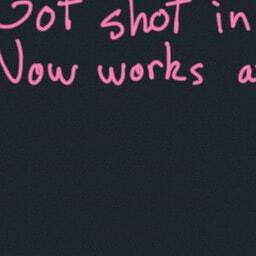 Got shot in
Now works a